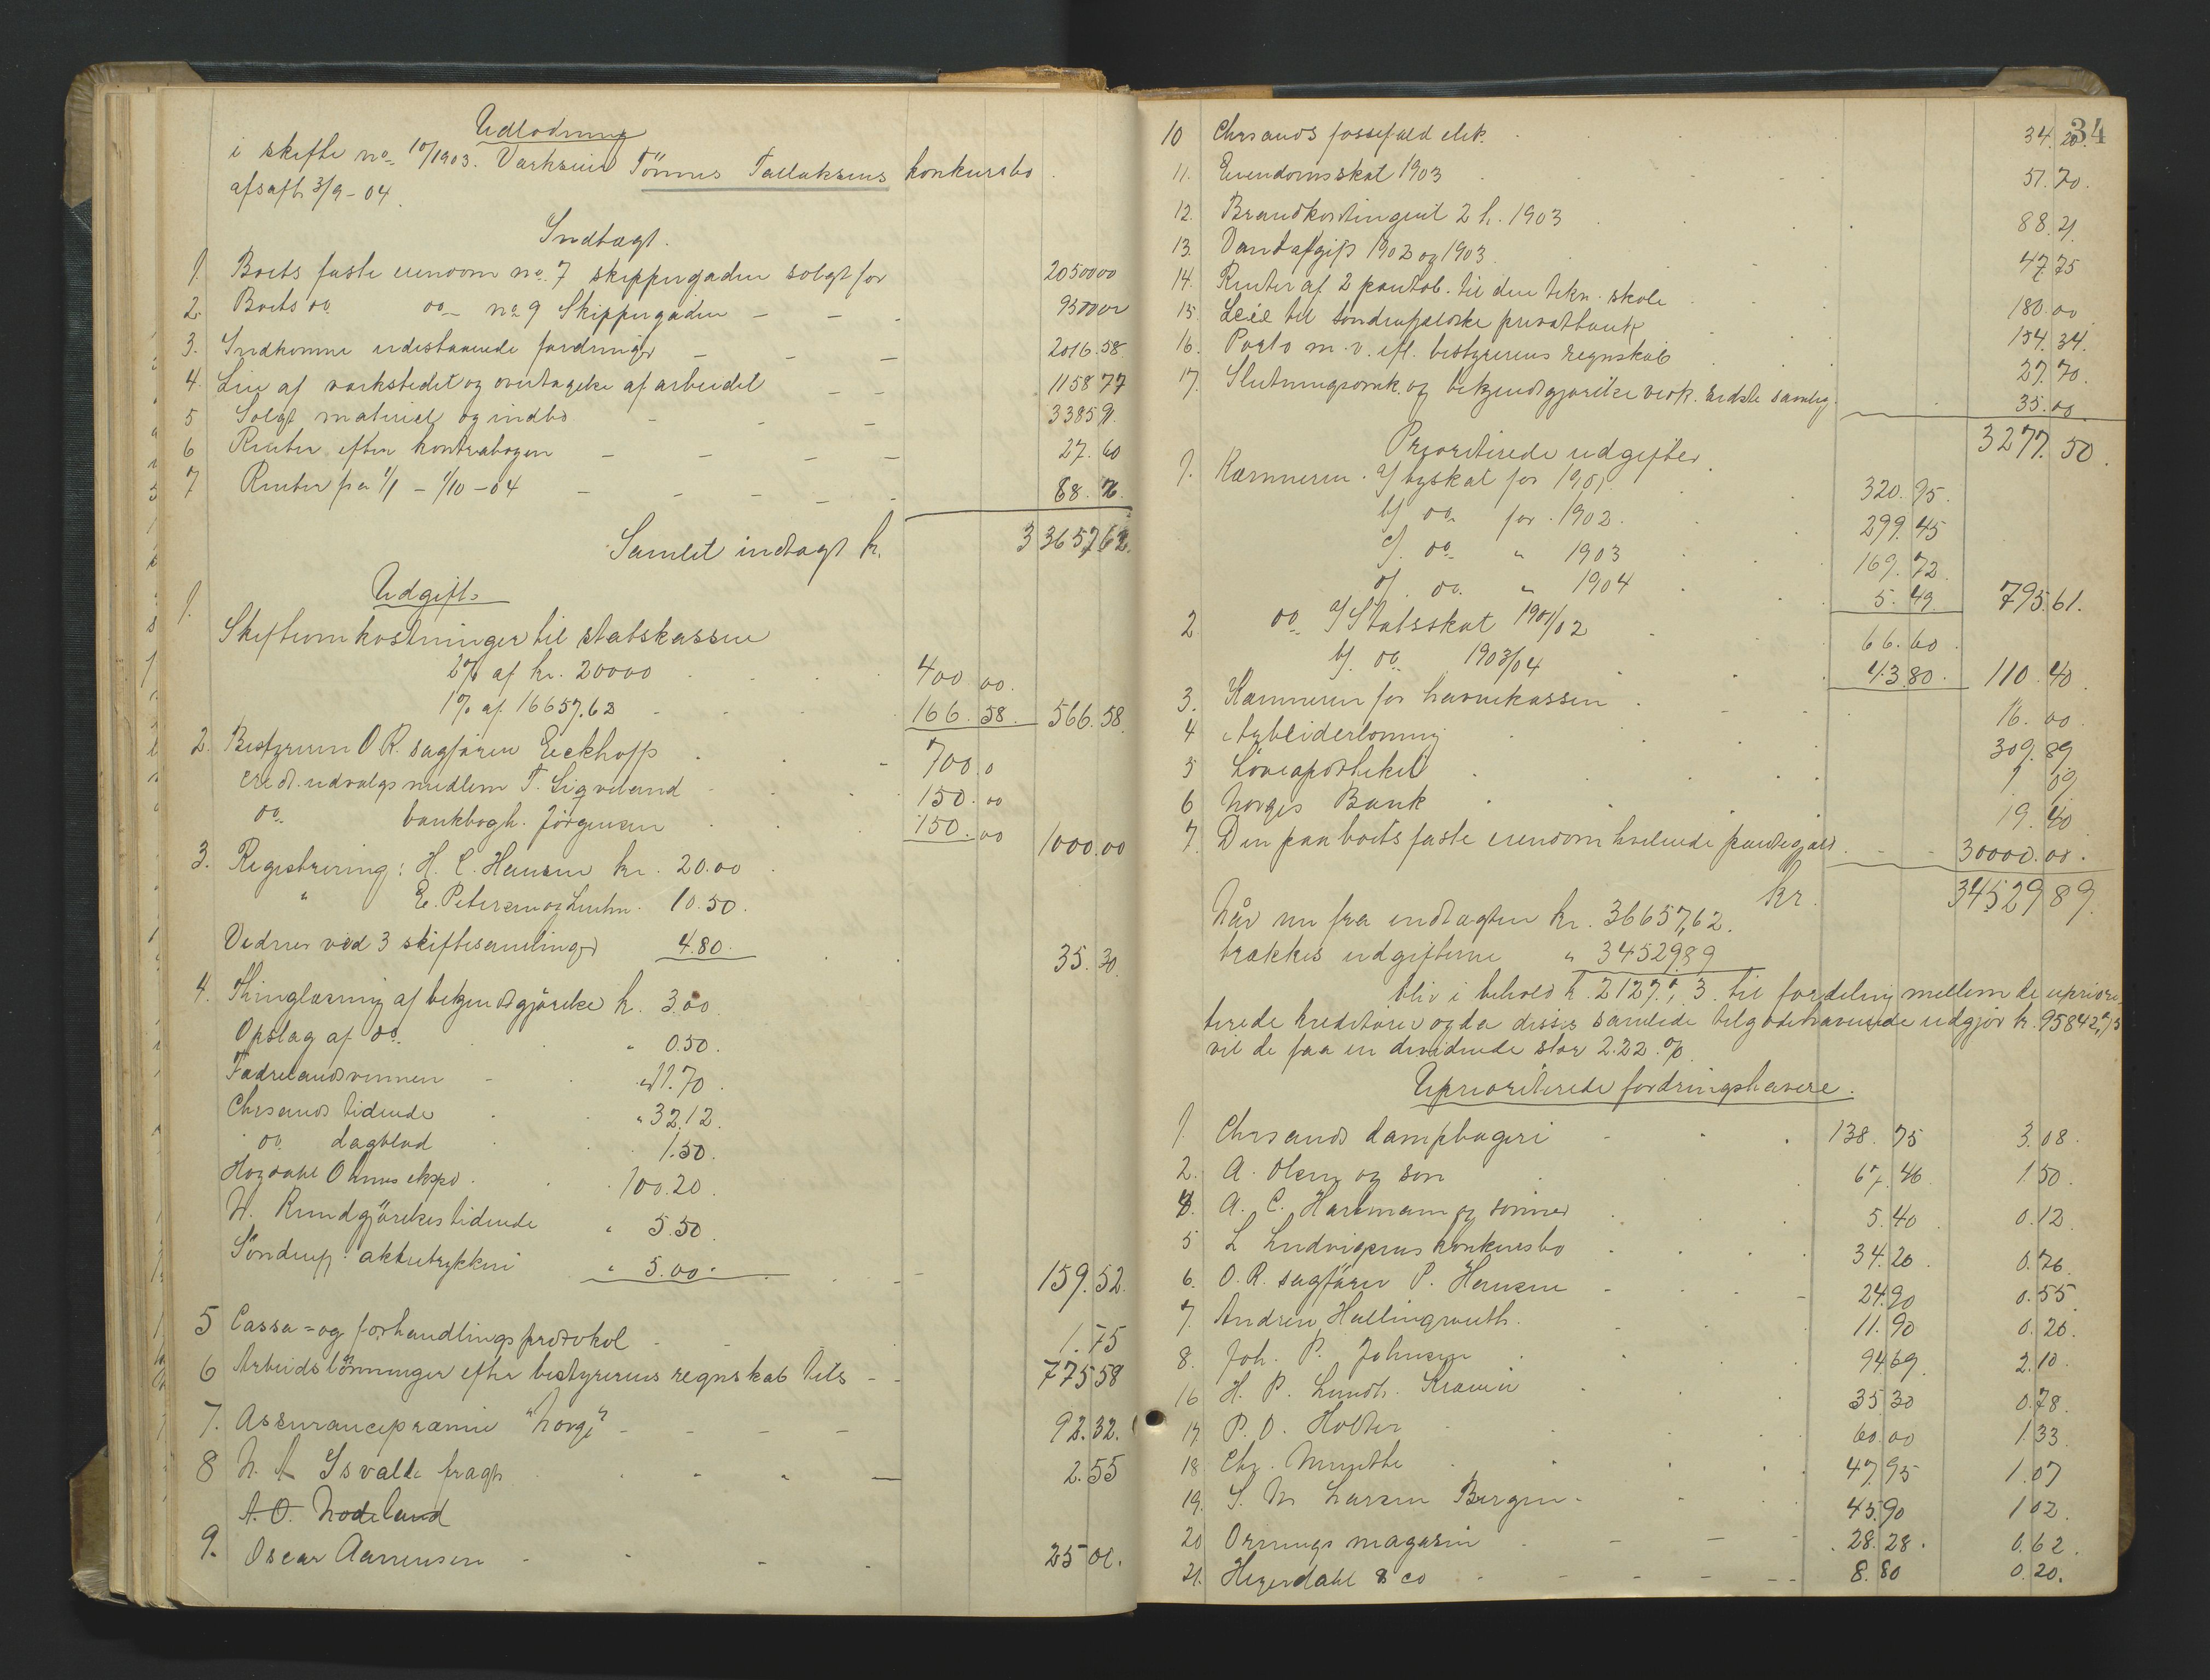 Udlodning
i skifte no. 10/1903. Værkseier Tönnes Tallaksens konkursbo.
afsagt 3/9-04.
Indtægt.
1. Boets faste eiendom no. 7 skippergaden solgt for 20500 00
2. Boets do. do. no 9 Skippergaden 9500 00
3. Indkomne udestaaende fordringer 2016.58
4. Leie af verkstedet og overtagelse af arbeidet 1158 77
5 Solgt materiel og indbo 3385 9.
6 Renter efter kontrabogen 27.60
7 Renter fra 1/1 - 1/10-04 68.76.
Samlet indtægt kr. 36657 62.
Udgift.
1. Skifteomkostninger til statskassen
2% af kr. 20000 400 00.
1% af 16657.62 166.58. 566.58.
2. Bestyreren O.R. sagfører Eckhoff 700.0
cred.udvalgsmedlem T. Sigveland 150.00
do. bankbogh. Jörgensen 150.00 1000.00
3. Registrering: H. C. Hansen kr. 20.00
" E. Petersen og 10.50.
Vidner ved 3 skiftesamlinger 4.80. 35.30.
4. Thinglæsning af bekjendtgjörelse kr. 3.00.
Opslag af do. " 0.50.
Fædrelandsvennen " 11.70.
Chrsands tidende " 32.12.
do. dagblad 1.50.
Hozdahl Ohmes ekspd. 100.20.
N. Kundgjörelsestidende " 5.50.
Söndenf. aktietrykkeri " 5.00. 159.52.
5 Cassa- og forhandlingsprotokol 1.75
6 Arbeidslönninger efter bestyrerens regnskab 775 58
7. Assurancepræmie "Norge" 92.32.
8 N. A Isvalde fragt 2.55
A. O. Nodeland
9. Oscar Aanensen 25 00.
34
10 Chrsands fossefald elek. 34.20.
11. Eiendomsskat 1903 51.70.
12. Brandkontingent 2 h. 1903 88.21.
13. Vandafgift 1902 og 1903. 47.75
14. Renter af 2 pantob. til den tekn. skole 180.00
15. Leie til söndenfjeldske privatbank 154.34.
16. Porto m.v. efl. bestyrerens regnskab 27.70.
17. Slutningsomk. og bekjendtgjörelse vedk. sidste samling. 35.00
3277.50.
Prioriterede udgifter.
1. Kæmneren. a/ byskat for 1901. 320.95.
b/ do. for 1902. 299.45
c/. do. " 1903 169.72.
d/. do. " 1904 5.49. 795.61.
2 do. a/ Statsskat 1901/02 66.60.
b/. do. 1903/04 43.80. 110.40.
3. Kæmneren for havnekassen 16.00.
4 Arbeiderlönning 309.89
5 Löveapotheket 1.09
6 Norges Bank 19.40
7. Den paa boets faste eiendom hvilende pantegjæld 30000.00.
kr. 34529 89.
Når nu fra indtægten kr. 36657,62.
trækkes udgifterne " 34529 89
bliv i behold kr. 2127., 3. til fordeling mellem de uprior-
terede kreditorer og da disses samlede tilgodehavende udgjør kr. 95842,75
vil de faa en dividende stor 2.22 %.
Uprioriterede fordringshavere.
1. Chrsands dampbageri 138.75 3.08.
2. A. Olsen og sön 67.46 1.50.
4. A. C. Hartmann og sönner 5.40 0.12.
5 L Ludvigsens konkursbo 34.20 0.76.
6. O.R. sagfører P. Hansen 24.90 0.55
7. Andreas Hallingrauth. 11.90 0.26.
8. Joh. P. Johnsen 94.69. 2.10.
16 H. P. Lundh. Kramer 35.30 0.78.
17. P. O. Holter 60.00 1.33
18 Chr. Munthe 47.95 1.07
19. S. M Larsen Bergen. 45.90 1 02.
20 Ornings magasin 28.28. 0.62.
21. Hegerdahl & co 8.80 0.20.